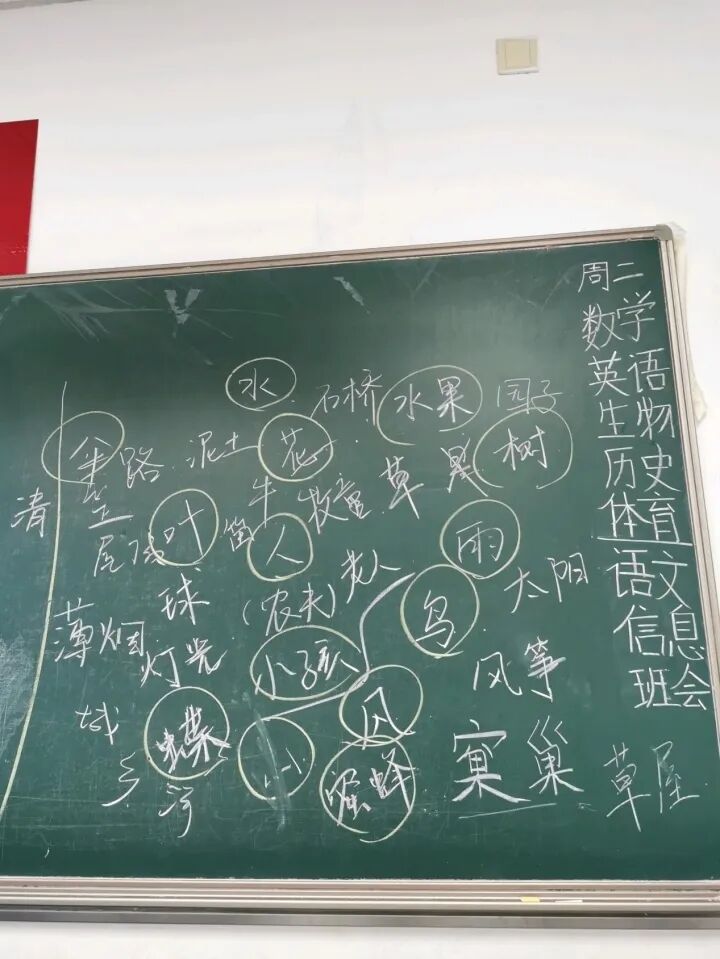 周二
数学
英语
生物
历史
体育
语文
信息
班会
水 石桥 水果 园子
路 泥土 花 树
清 叶 笛 牛 牧童 草 果
人 雨
球 (农夫) 老人 鸟 太阳
薄烟 灯光 小孩 风筝
城 蝶 山 风
乡 河 蜜蜂 窠 巢 草屋